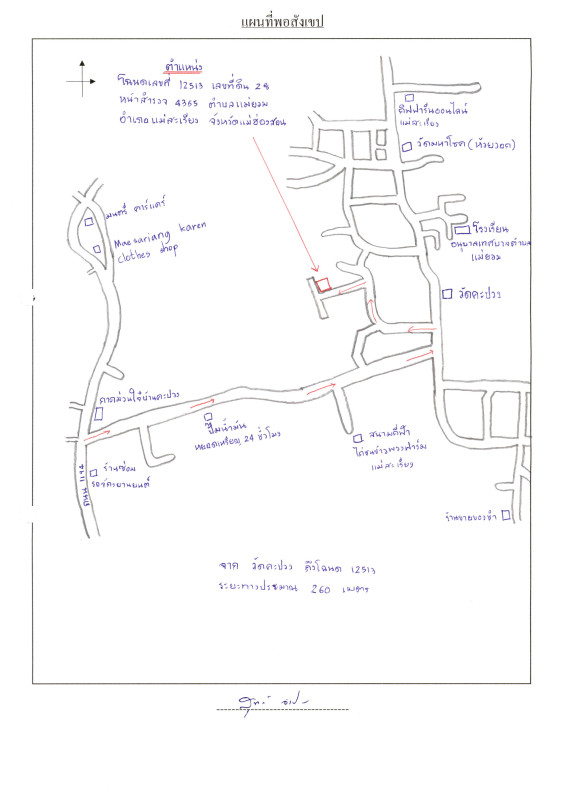 แผนที่พอสังเขป
ตำแหน่ง
โฉนดเลขที่ 12513 เลขที่ดิน 28
หน้าสำรวจ 4365 ตำบลแม่ยวม
อำเภอแม่สะเรียง จังหวัดแม่ฮ่องสอน
กิฟฟารีนออนไลน์
แม่สะเรียง
วัดมหาโชค (ห้วยวอก)
มนตรี คาร์แคร์
Maesariang karen
clothes shop
โรงเรียน
อนุบาลเทศบาลตำบล
แม่ยวม
วัดคะปวง
ลาดส่วนใจบ้านคะปวง
ปั๊มน้ำมัน
หยอดเหรียญ 24 ชั่วโมง
สนามกีฬา
ไก่ชน
แม่สะเรียง
ร้านซ่อม
รถจักรยานยนต์
ถนน 1194
ร้านขายของชำ
จาก วัดคะปวง ถึงโฉนด 12513
ระยะทางประมาณ 260 เมตร